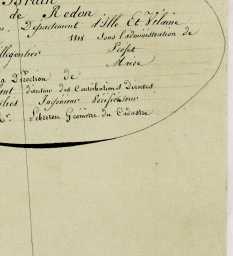 Brain
de Redon
Département d'Ille Et Vilaine
1818 Sous l'administration de
Préfet
Maire
Direction de
directeur des Contributions Directes,
Ingénieur Vérificateur
Géomètre du Cadastre